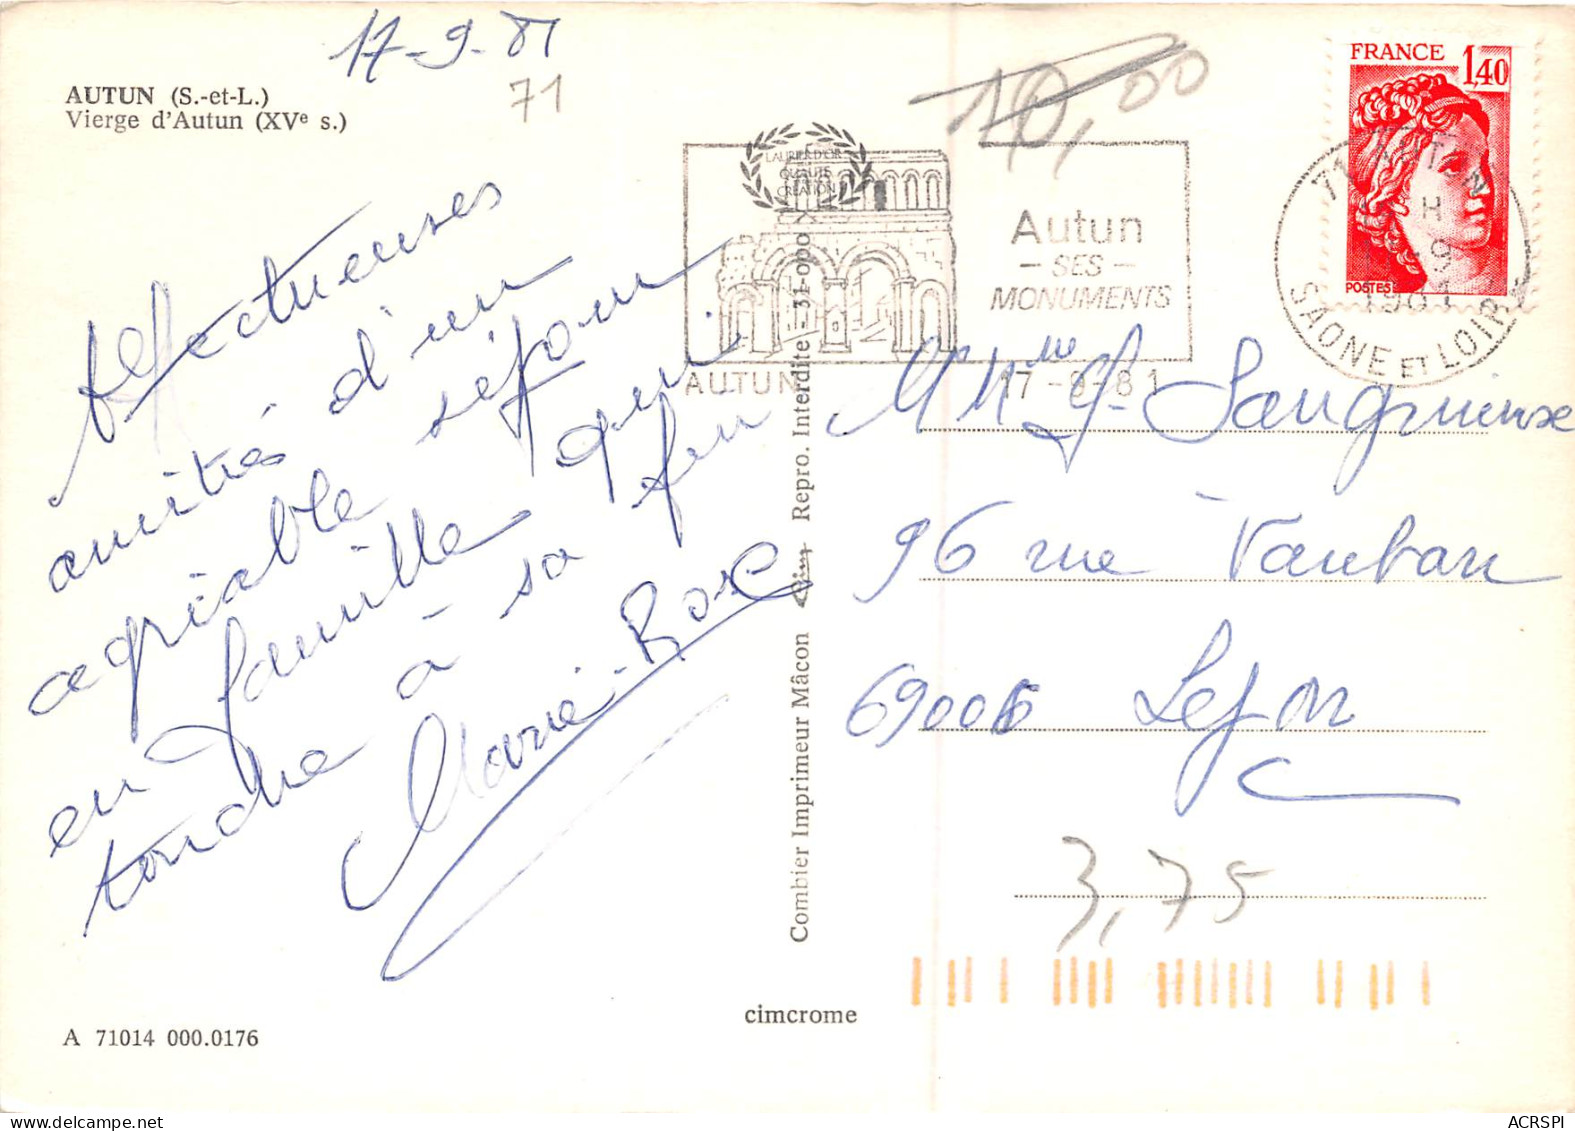 17-9-81
71
AUTUN (S.-et-L.)
Vierge d'Autun (XVe s.)
Affectueuses
amitiés d'un
agréable séjour
en famille qui
touche à sa fin
Marie-Rose
A 71014 000.0176
cimcrome
Combier Imprimeur Mâcon Cim Repro. Interdite - 31-000
LAURIER D'OR
QUALITÉ
CRÉATION
10,00
Autun
- SES -
MONUMENTS
AUTUN 17-9-81
FRANCE 1,40
POSTES
71 AUTUN
H
9
1981
SAONE ET LOIRE
M Mme
96 rue Vauban
69006 Lyon
3,75
ACRSPI